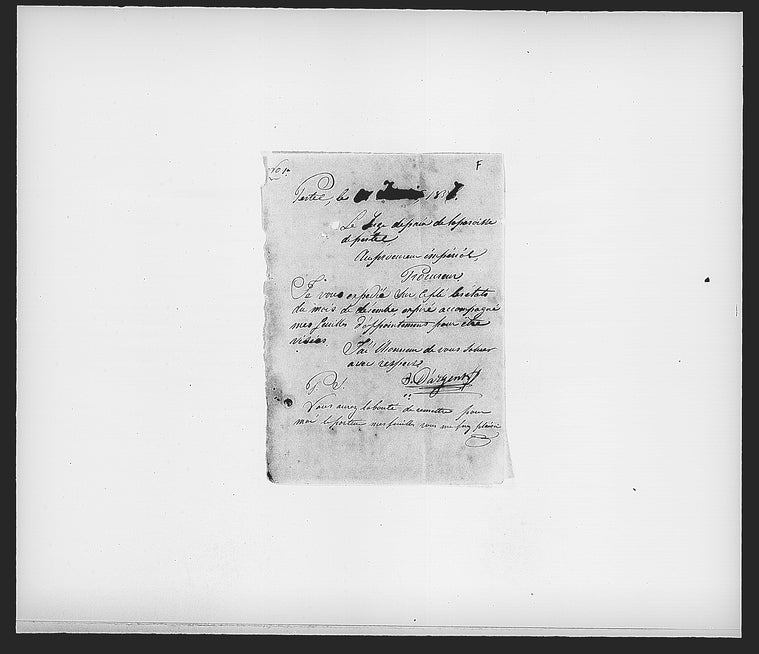 F
Pestel, le
Le Juge de paix de la paroisse
de pestel
Au procureur impérial,
Procureur
Je vous expédie sur ce pli les états
du mois de décembre expiré accompagné
mes feuilles d'appointemens pour être
visées
J'ai l'honneur de vous saluer
avec respect
J. Dargent
P. S.
Vous aurez la bonté de remettre pour
moi le porteur mes feuilles vous me ferez plaisir